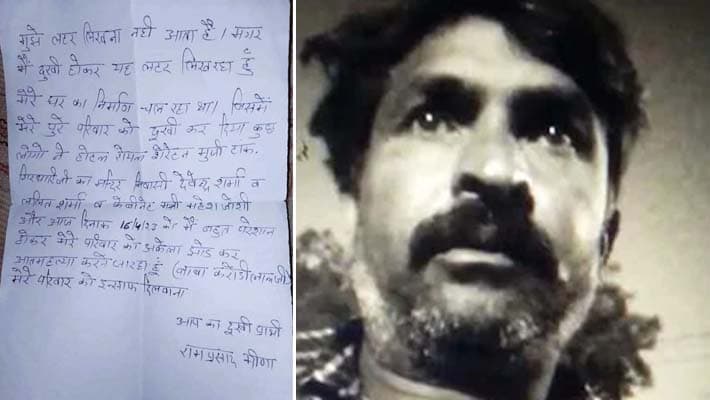 मुझे लटर लिखना नही आता है। मगर
मैं दुखी होकर यह लटर लिख रहा हुँ
मेरे घर का निर्माण चल रहा था। जिसमें
मेरे पुरे परिवार को दुखी कर दिया कुछ
लोगो ने होटल रोयल शेरेटन मुंजी टाक.
गिरधारीजी का मन्दिर निवासी देवेन्द्र शर्मा व
ललित शर्मा व केबीनेट मंत्री महेश जोशी
और आज दिनांक 16/4/23 को मैं बहुत परेशान
होकर मेरे परिवार को अकेला छोड कर
आत्महत्या करने जा रहा हुँ (बाबा करोडी लाल जी)
मेरे परिवार को इन्साफ दिलवाना
आप का दुखी प्रार्थी
रामप्रसाद मीणा